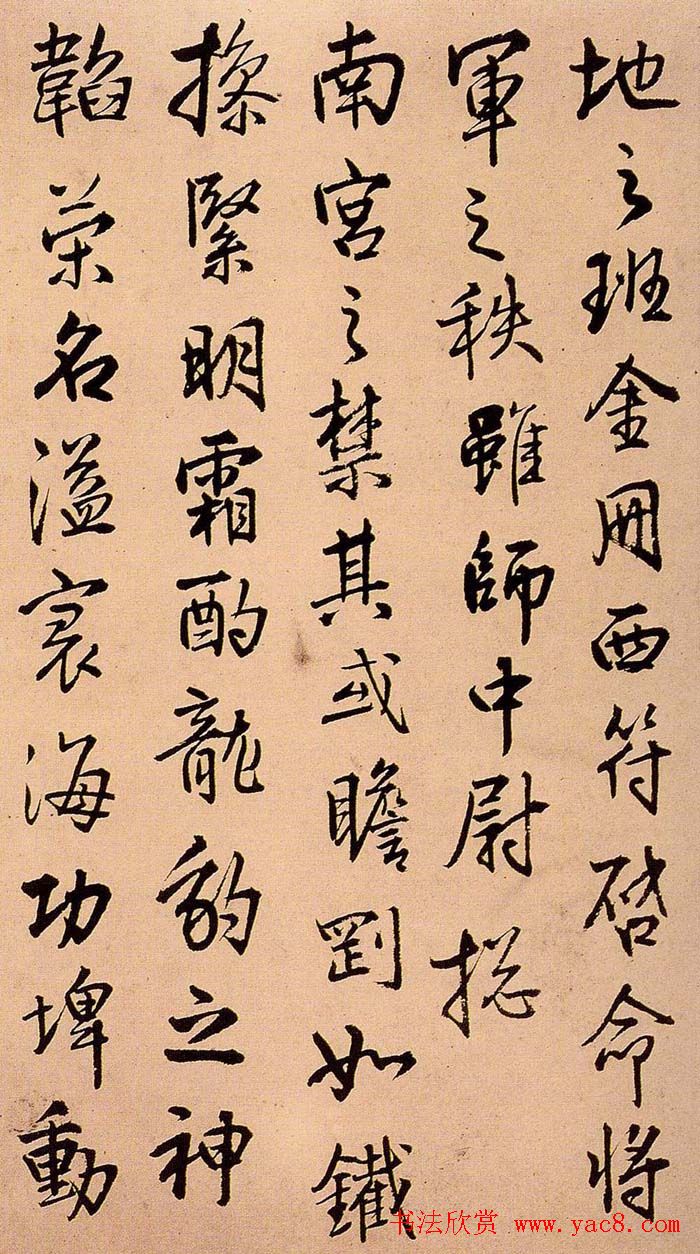 地之班金冊西符啓命將
軍之秩雖師中尉揔
南宮之禁其或膽剛如鐵
操緊明霜酌龍豹之神
韜榮名溢寰海功埤動
书法欣赏 www.yac8.com